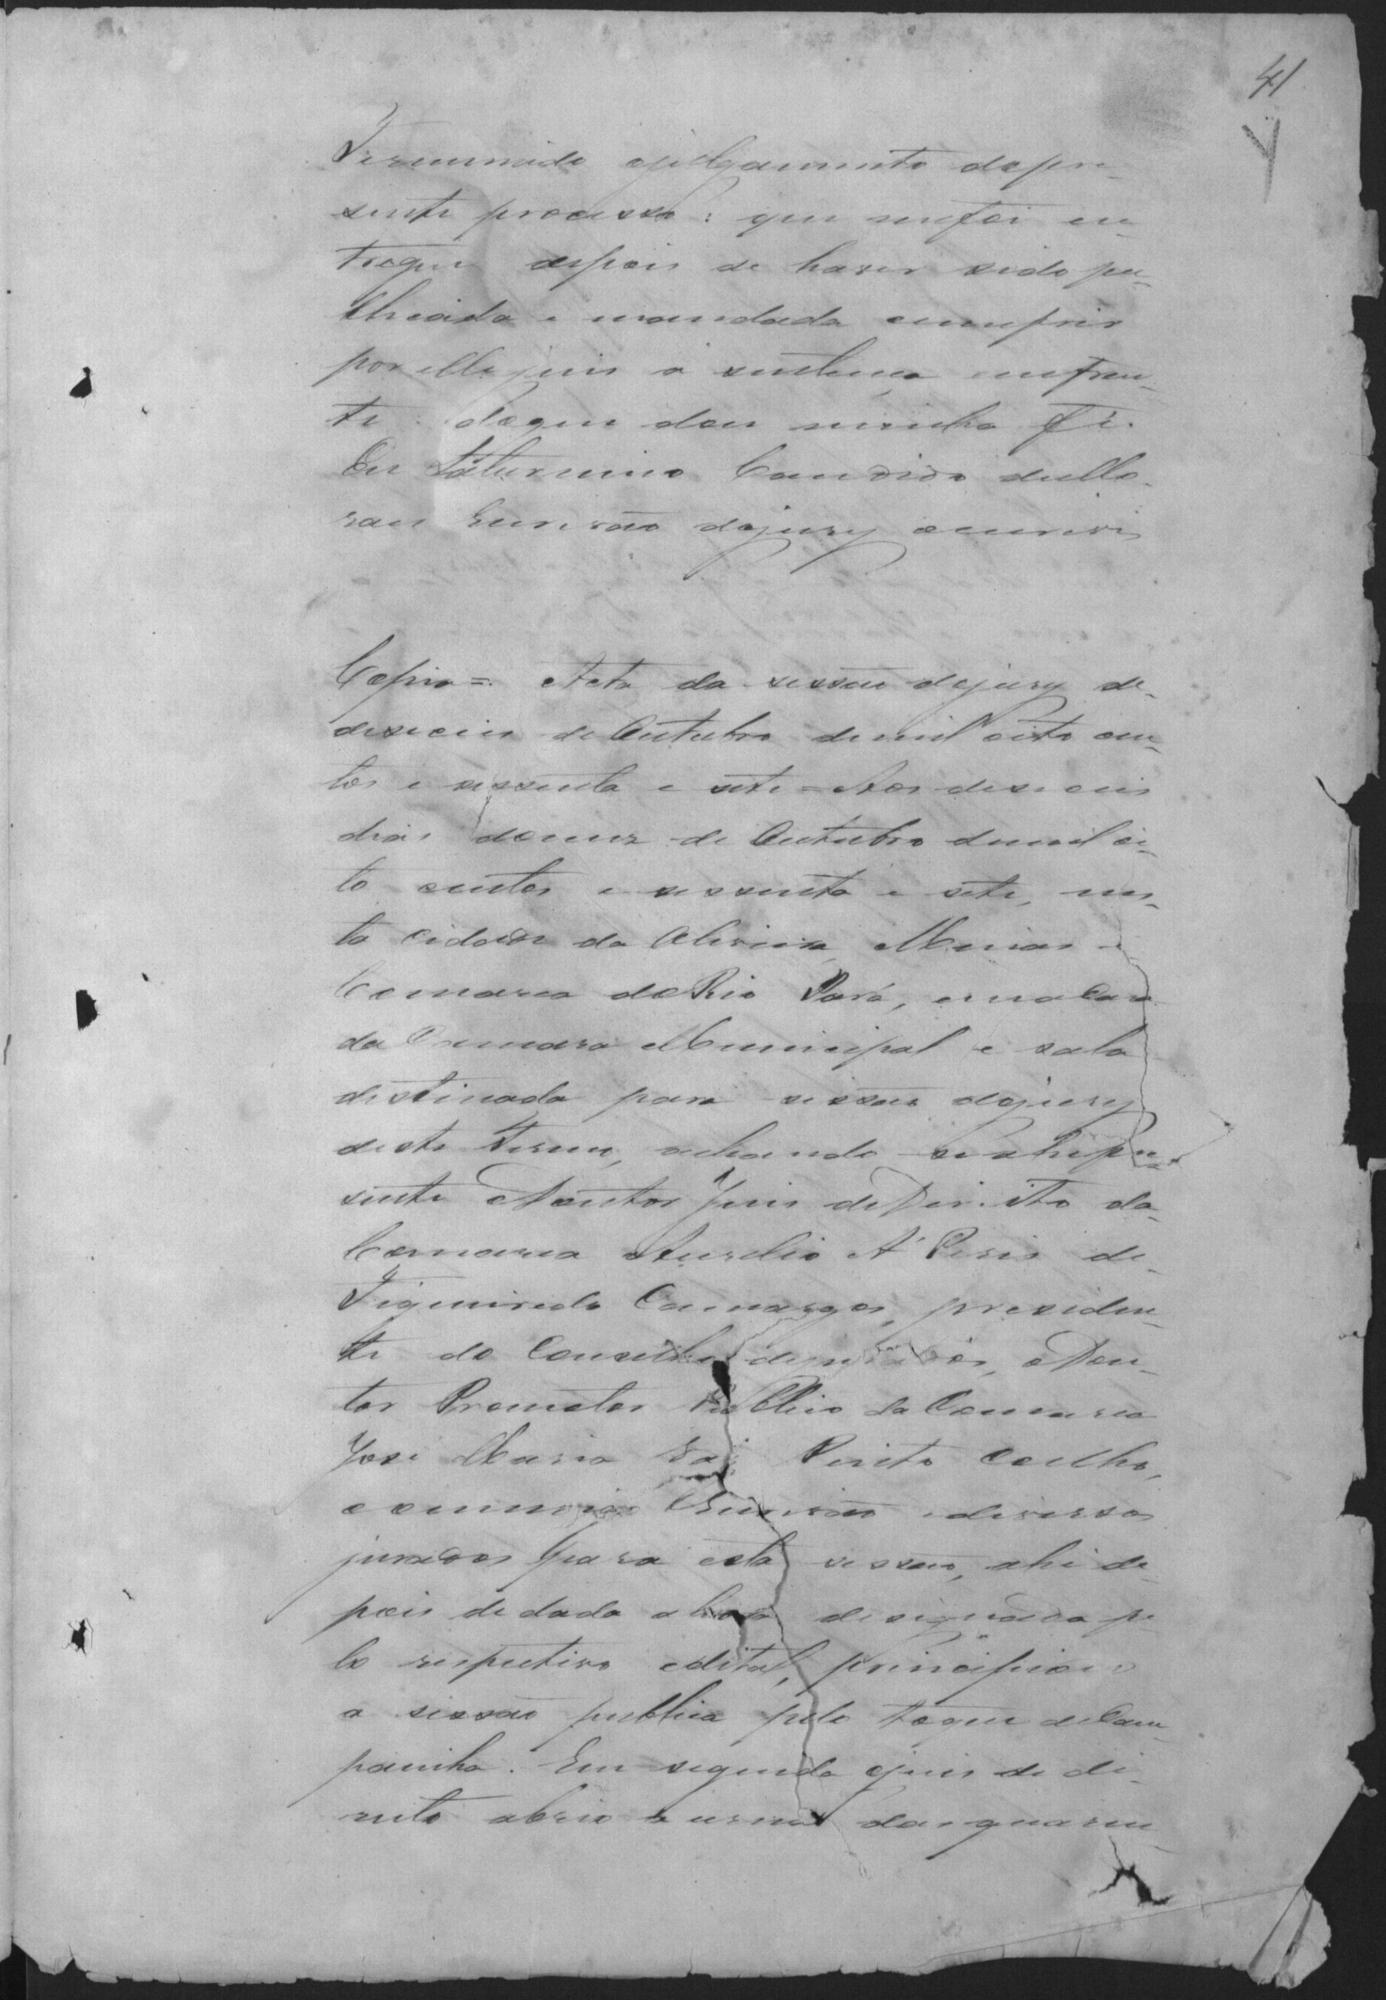 41
Terminado ojulgamento dopre-
sente processo: que mefoi en-
tregue depois de haver sido pu-
blicada e mandada cumprir
por elle juis a sentença emfren-
te. doque dou minha fé.
Eu Saturnino Candido de
Escrivão dojury oescrevi
Copia = Acta da sessão dojury de
deseceis de Outubro demil oito cen-
tos e sessenta e sete = Aos deseceis
dias domez de Outubro demil oi-
to centos e sessenta e sete, nes-
ta cidade da Oliveira, Minas e
Comarca doRio Pará, emacasa
da Camara Municipal e sala
destinada para sessões dojury
deste Termo, achando seahi pre-
sente oDoutor Juis deDireito da
Comarca Aurelio A. Peris de
Figueiredo Camargos, presiden-
te do Conselho dejurados, oDou-
tor Promotor Publico da Comarca
José Maria Vaz Pinto Coelho,
comigo Escrivão ediversos
jurados para esta sessão, ahi de-
pois de dada ahora designada pe-
lo respectivo edital, principiou
a sessão publica pelo toque deCam-
painha. Em seguida ojuis de di-
reito abrio a urna dasquaren-